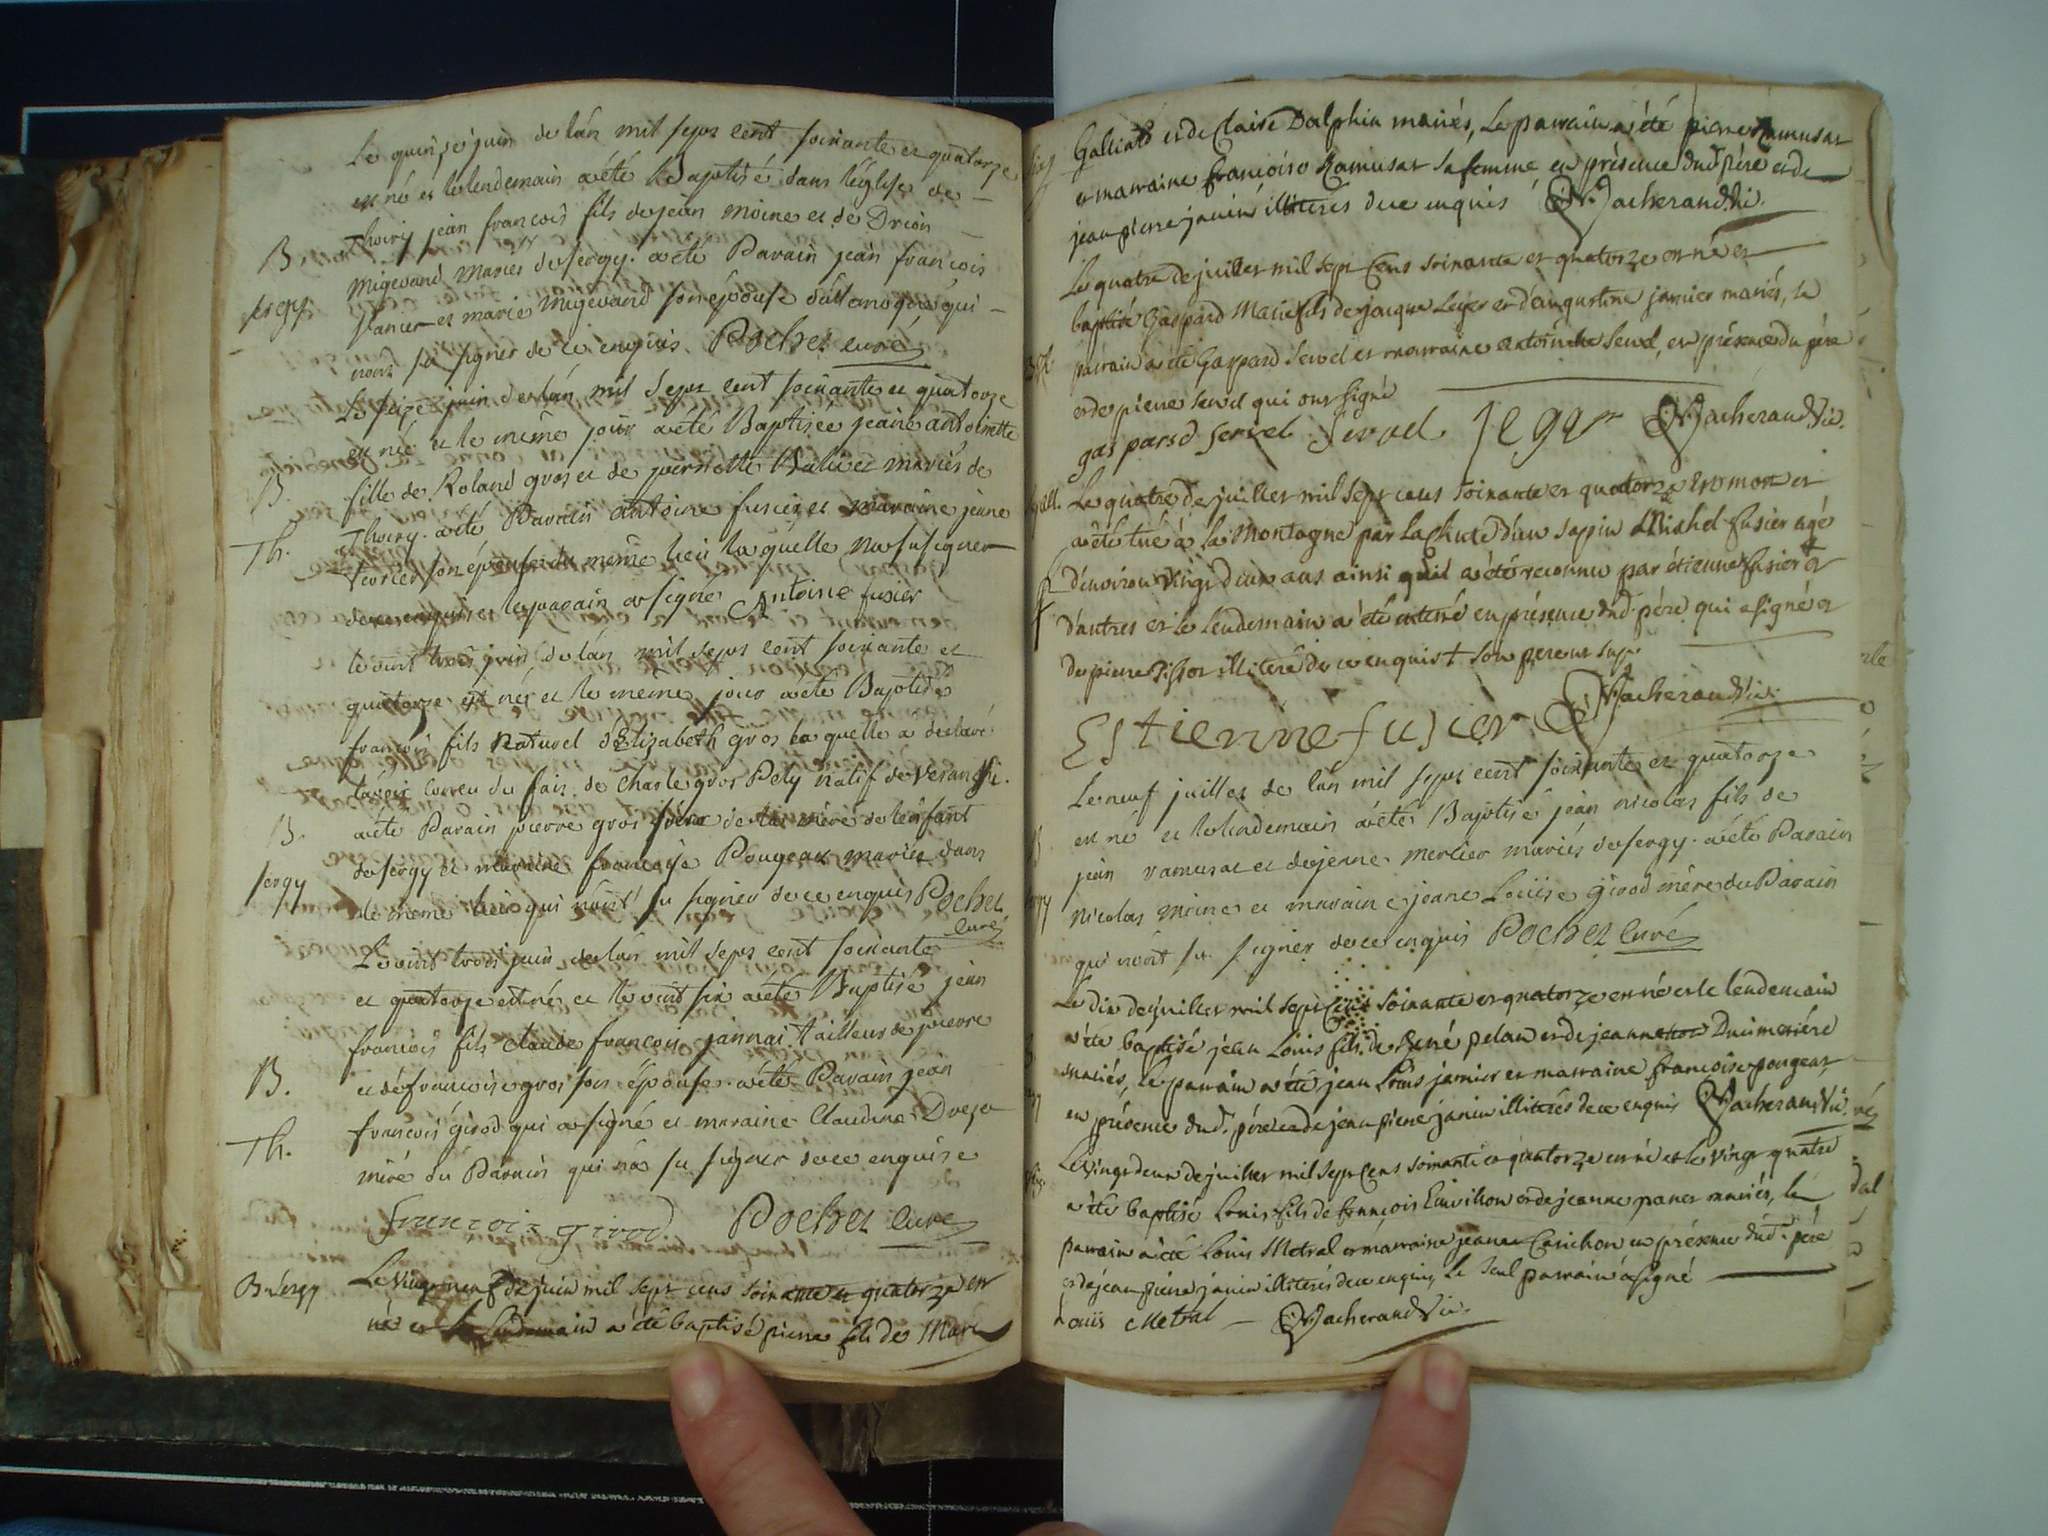 Le quinze juin de l'an mil sept cent soixante et quatorze
est né et le lendemain a été Baptisé dans l'église de
B. Thoiry jean françois fils de jean moine et de
migevand mariés de sergy. a été Parain jean françois
sergy janier et marie migevand son épouse qui
n'ont su signer de ce enquis Pochet curé
Le seize juin de l'an mil sept cent soixante et quatorze
est née et le même jour a été Baptisée jeane antoinette
B. fille de Roland gros et de pernette mariés de
Th. Thoiry. a été Parain antoine fusier et maraine jeane
son épouse du même lieu laquelle n'a su signer
de ce enquise le parain a signé Antoine fusier
le vint trois juin de l'an mil sept cent soixante et
quatorze est né et le meme jour a été Baptisé
françois fils naturel d'Elizabeth gros laquelle a déclaré
l'avoir du fait de Charle gros Pely natif de
B. a été Parain pierre gros frère de la mère de l'enfant
sergy de sergy et maraine françoise Pougeat mariée dans
le meme lieu qui n'ont su signer de ce enquis Pochet
curé
Le vint trois juin de l'an mil sept cent soixante
et quatorze est né et le vint six a été Baptisé jean
françois fils claude françois jannai tailleur de pierre
B. et de françoise gros son épouse. a été Parain jean
Th. françois girod qui a signé et maraine Claudine
mère du Parain qui n'a su signer de ce enquise
francoiz girod Pochet curé
B. sergy Le vingt neuf de juin mil sept cens soixante et quatorze est
né et le lendemain a été baptisé pierre fils de Marc
Galliard et de Claire Dalphin mariés, Le parrain a été pierre Ramusat
et marraine françoise Ramusat sa femme en présence dud. père et de
jean pierre janin illiterés de ce enquis Vacherand Vic.
Le quatre de juillet mil sept Cens soixante et quatorze est né et
baptisé Gaspard Marie fils de jacque Leger et d'augustine janier mariés, le
parrain a été Gaspard Servel et marraine antoinette Servel, en présence du père
et de pierre Servel qui ont signé
gasparsd servel Servel jegar Vacherand Vic.
Le quatre de juillet mil sept cens soixante et quatorze est mort et
a été tué à la Montagne par la Chute d'un sapin Michel fusier agé
d'environ vingt deux ans ainsi qu'il a été reconnu par étienne fusier †
d'autres et le lendemain a été enterré en présence dud. père qui a signé et
de pierre illiteré de ce enquis † son pere et
Vacherand Vic.
Estienne fusier
Le neuf juillet de l'an mil sept cent soixante et quatorze
est né et le lendemain a été Baptisé jean nicolas fils de
jean ramusat et de jeane mercier mariés de sergy. a été Parain
nicolas moine et maraine jeane Loüise girod mère du Parain
qui n'ont su signer de ce enquis Pochet curé
Le dix de juillet mil sept Cens soixante et quatorze est né et le lendemain
a été baptisé jean Louis fils de René pelan et de jeannette Dumeriére
mariés, Le parrain a été jean Louis janier et marraine françoise pougeat
en présence dud. père et de jean pierre janin illiterés de ce enquis Vacherand Vic.
Le vingt deux de juillet mil sept Cens soixante et quatorze est né et le vingt quatre
a été baptisé Louis fils de françois Emvilhon et de jeanne panet mariés, le
parrain a été Louis Metral et marraine jeanne Carichon en présence dud. père
et de jean pierre janin illiterés de ce enquis, Le seul parrain a signé
Louis Metral Vacherand Vic.